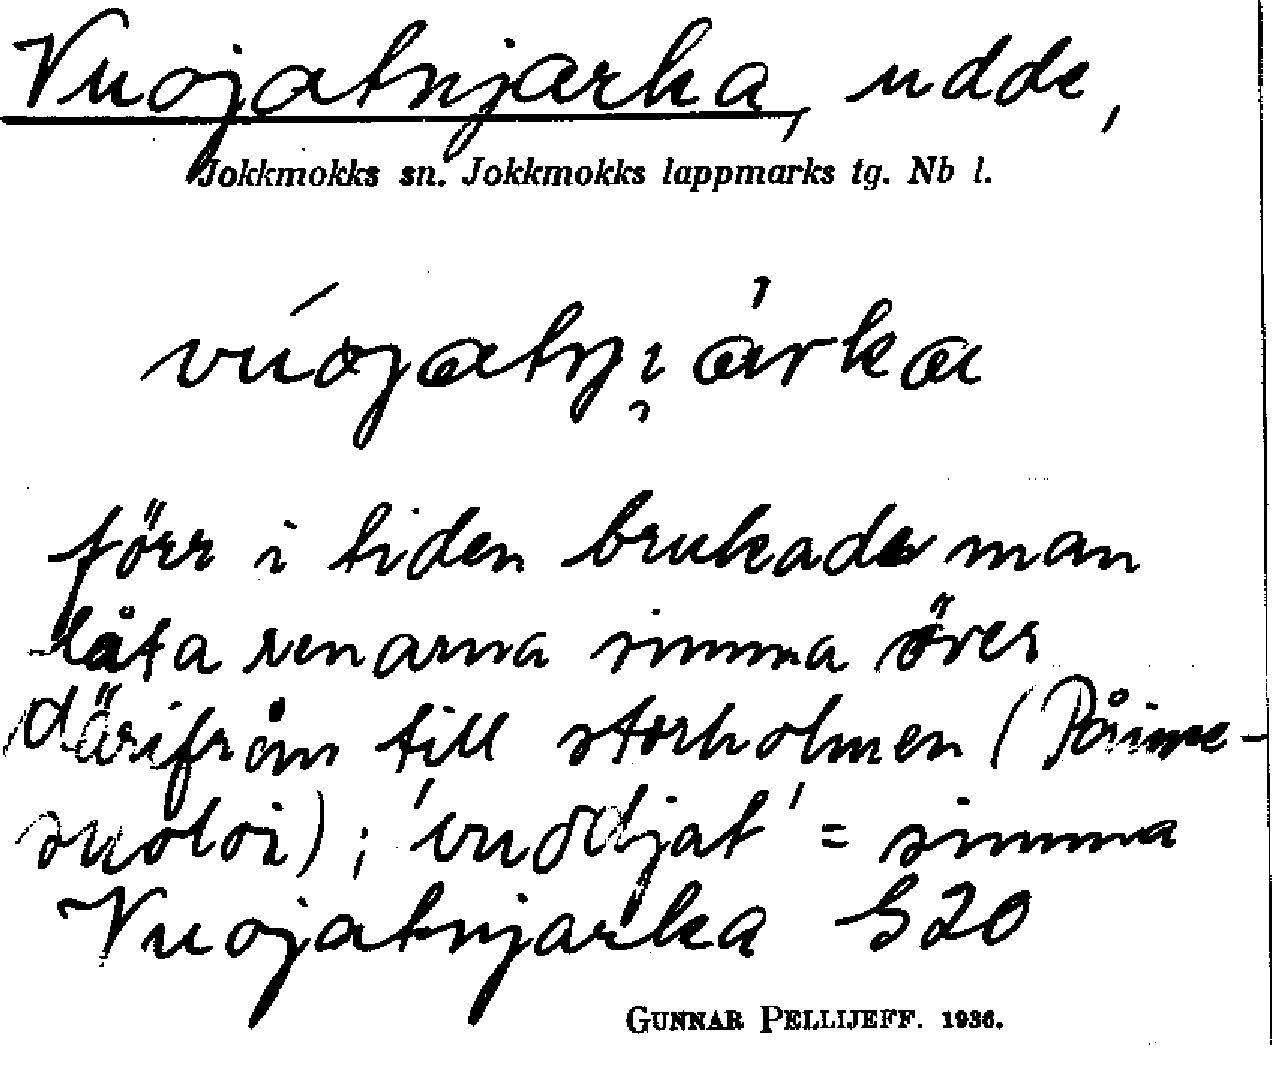 Vuojatnjarka, udde,
Jokkmokks sn. Jokkmokks lappmarks tg. Nb l.
förr i tiden brukade man
låta renarna simma över
därifrån till storholmen (
suoloi); 'vuoddjat' = simma
Vuojatnjarka S20
GUNNAR PELLIJEFF. 1936.